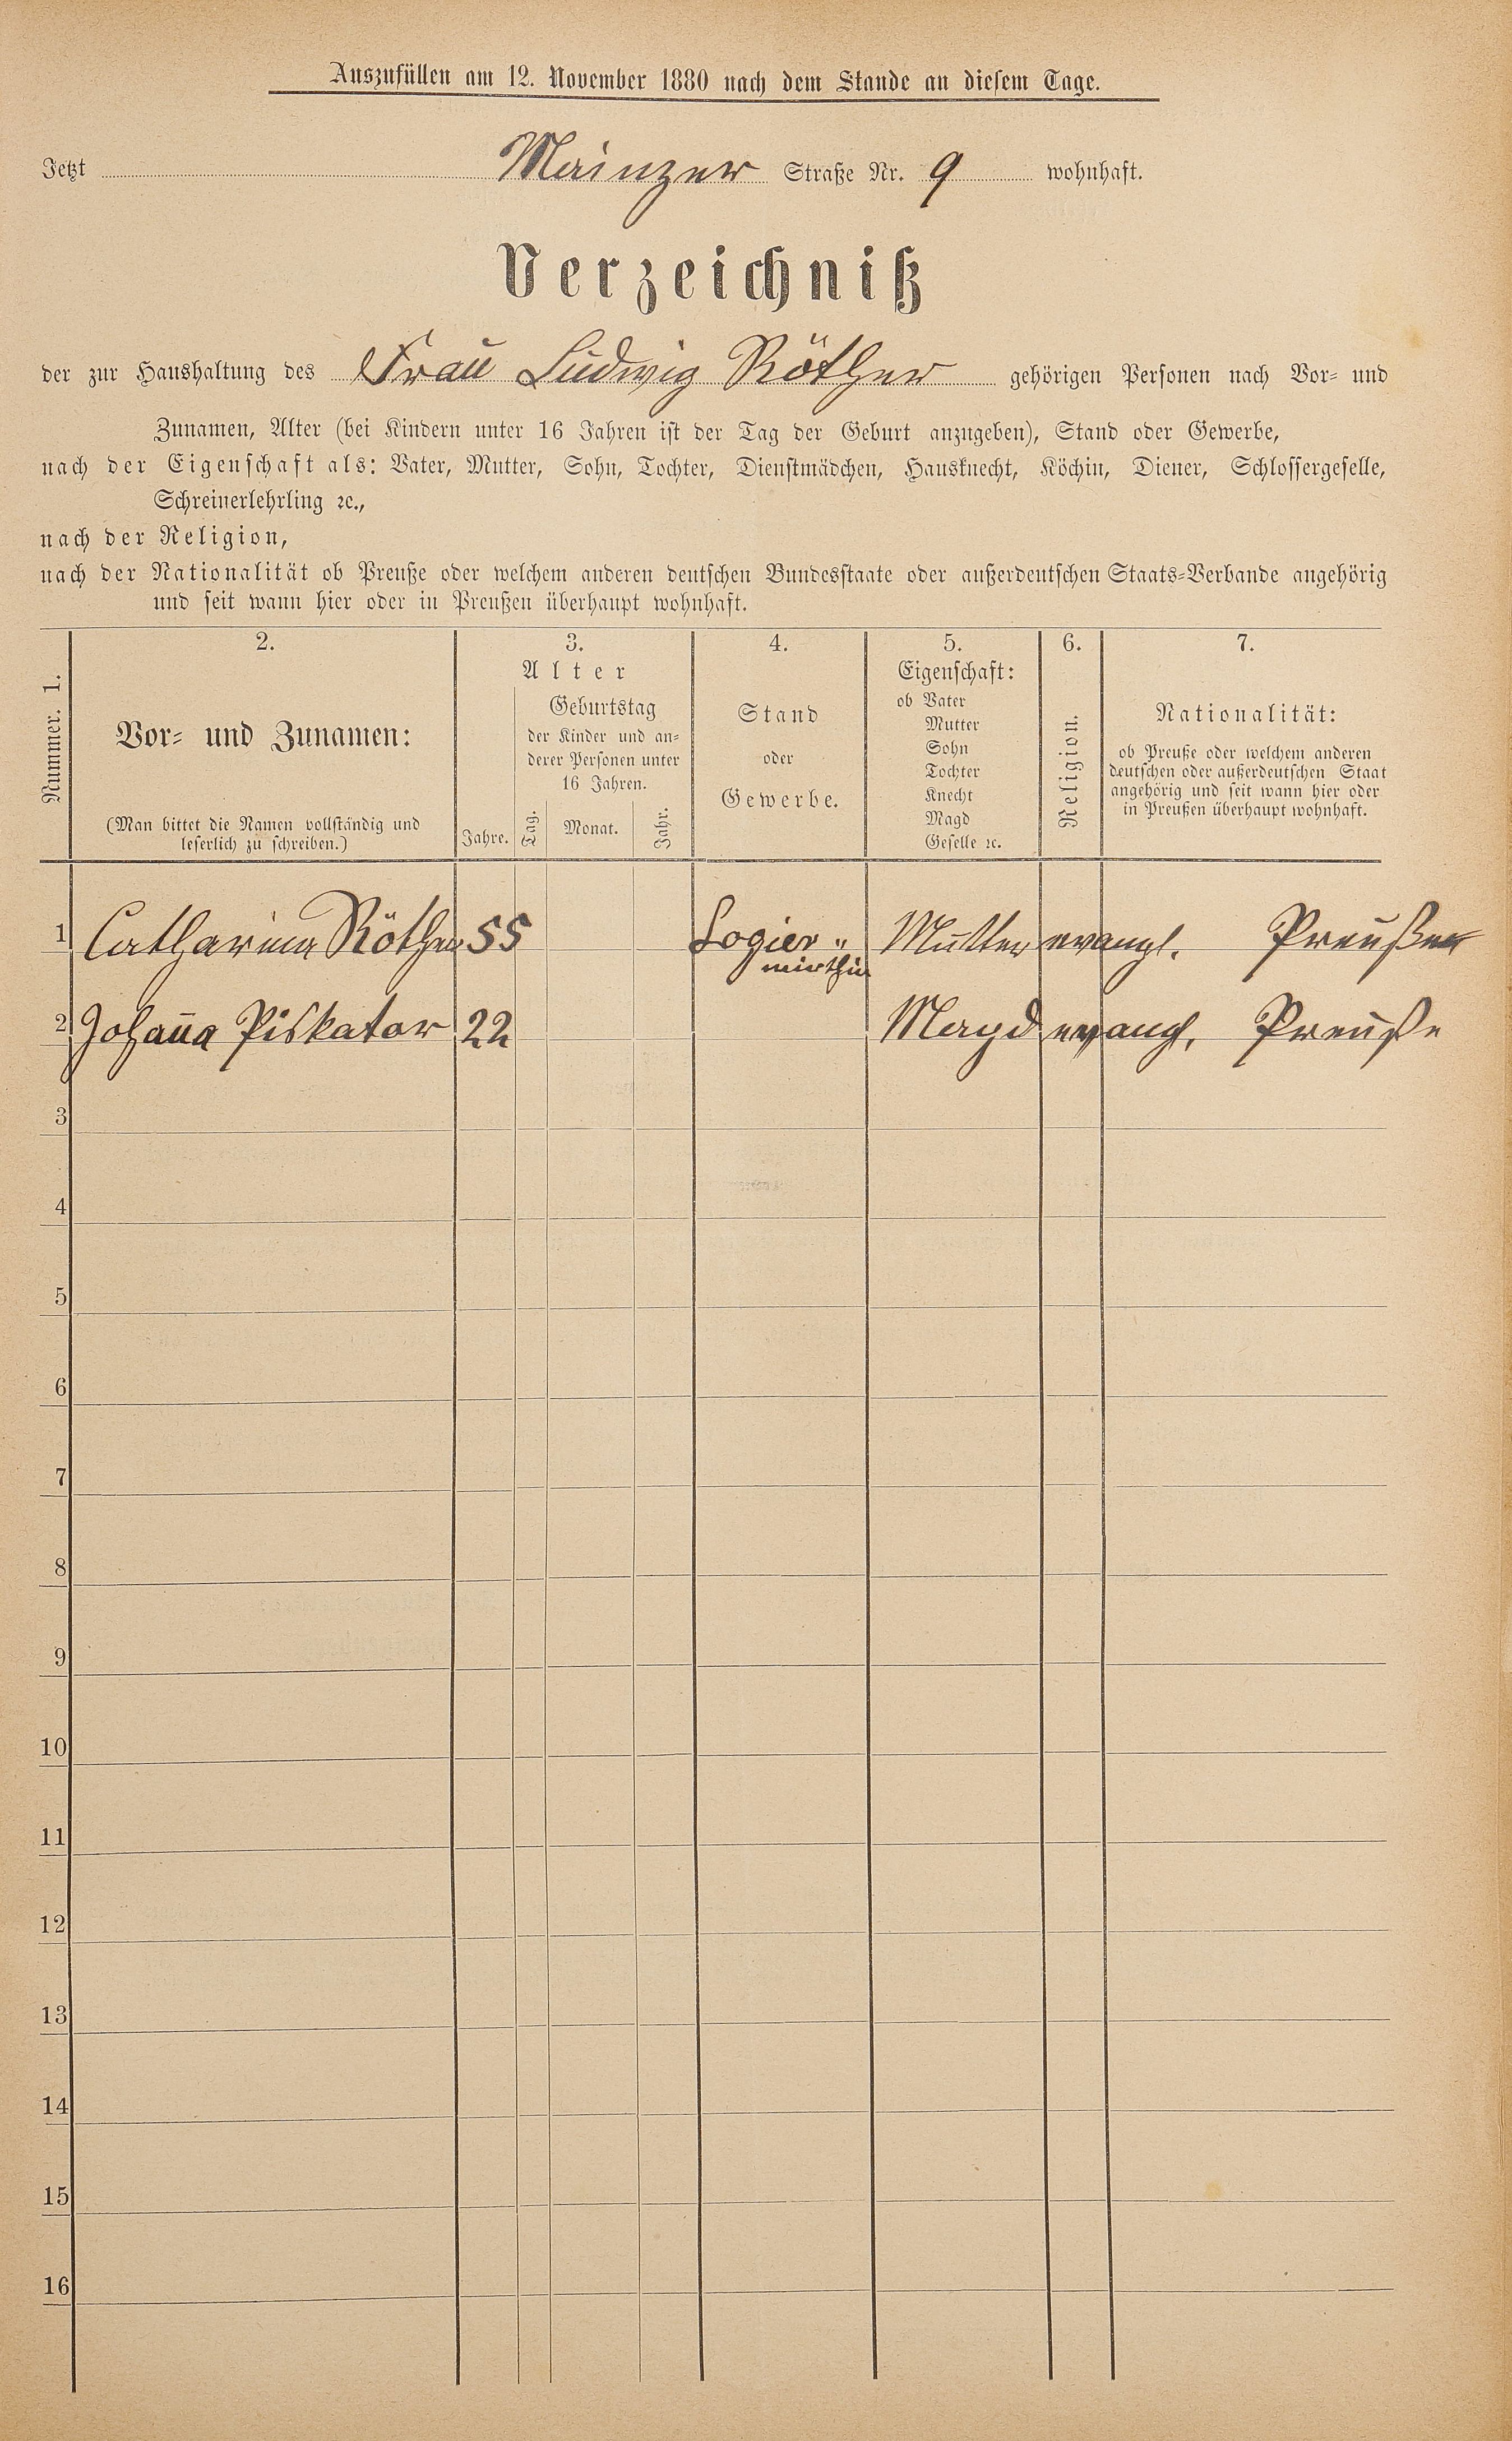 Auszufüllen am 12. November 1880 nach dem Stande an diesem Tage.
Jetzt Mainzer Straße Nr. 9 wohnhaft.
Verzeichniß
der zur Haushaltung des Frau Ludwig Röther gehörigen Personen nach Vor- und
Zunamen, Alter (bei Kindern unter 16 Jahren ist der Tag der Geburt anzugeben), Stand oder Gewerbe,
nach der Eigenschaft als: Vater, Mutter, Sohn, Tochter, Dienstmädchen, Hausknecht, Köchin, Diener, Schlossergeselle,
Schreinerlehrling ꝛc.,
nach der Religion,
nach der Nationalität ob Preuße oder welchem anderen deutschen Bundesstaate oder außerdeutschen Staats-Verbande angehörig
und seit wann hier oder in Preußen überhaupt wohnhaft.
Nummer. 1.
2.
Vor- und Zunamen:
(Man bittet die Namen vollständig und
leserlich zu schreiben.)
3.
Alter
Jahre.
Geburtstag
der Kinder und an-
derer Personen unter
16 Jahren.
Tag. Monat. Jahr.
4.
Stand
oder
Gewerbe.
5.
Eigenschaft:
ob Vater
Mutter
Sohn
Tochter
Knecht
Magd
Geselle ꝛc.
6.
Religion.
7.
Nationalität:
ob Preuße oder welchem anderen
deutschen oder außerdeutschen Staat
angehörig und seit wann hier oder
in Preußen überhaupt wohnhaft.
1 Catharina Röther 55 Logier- Mutter evangl. Preußen
wirthin
2 Johanna Piskator 22 Magd evangl. Preuße
3
4
5
6
7
8
9
10
11
12
13
14
15
16